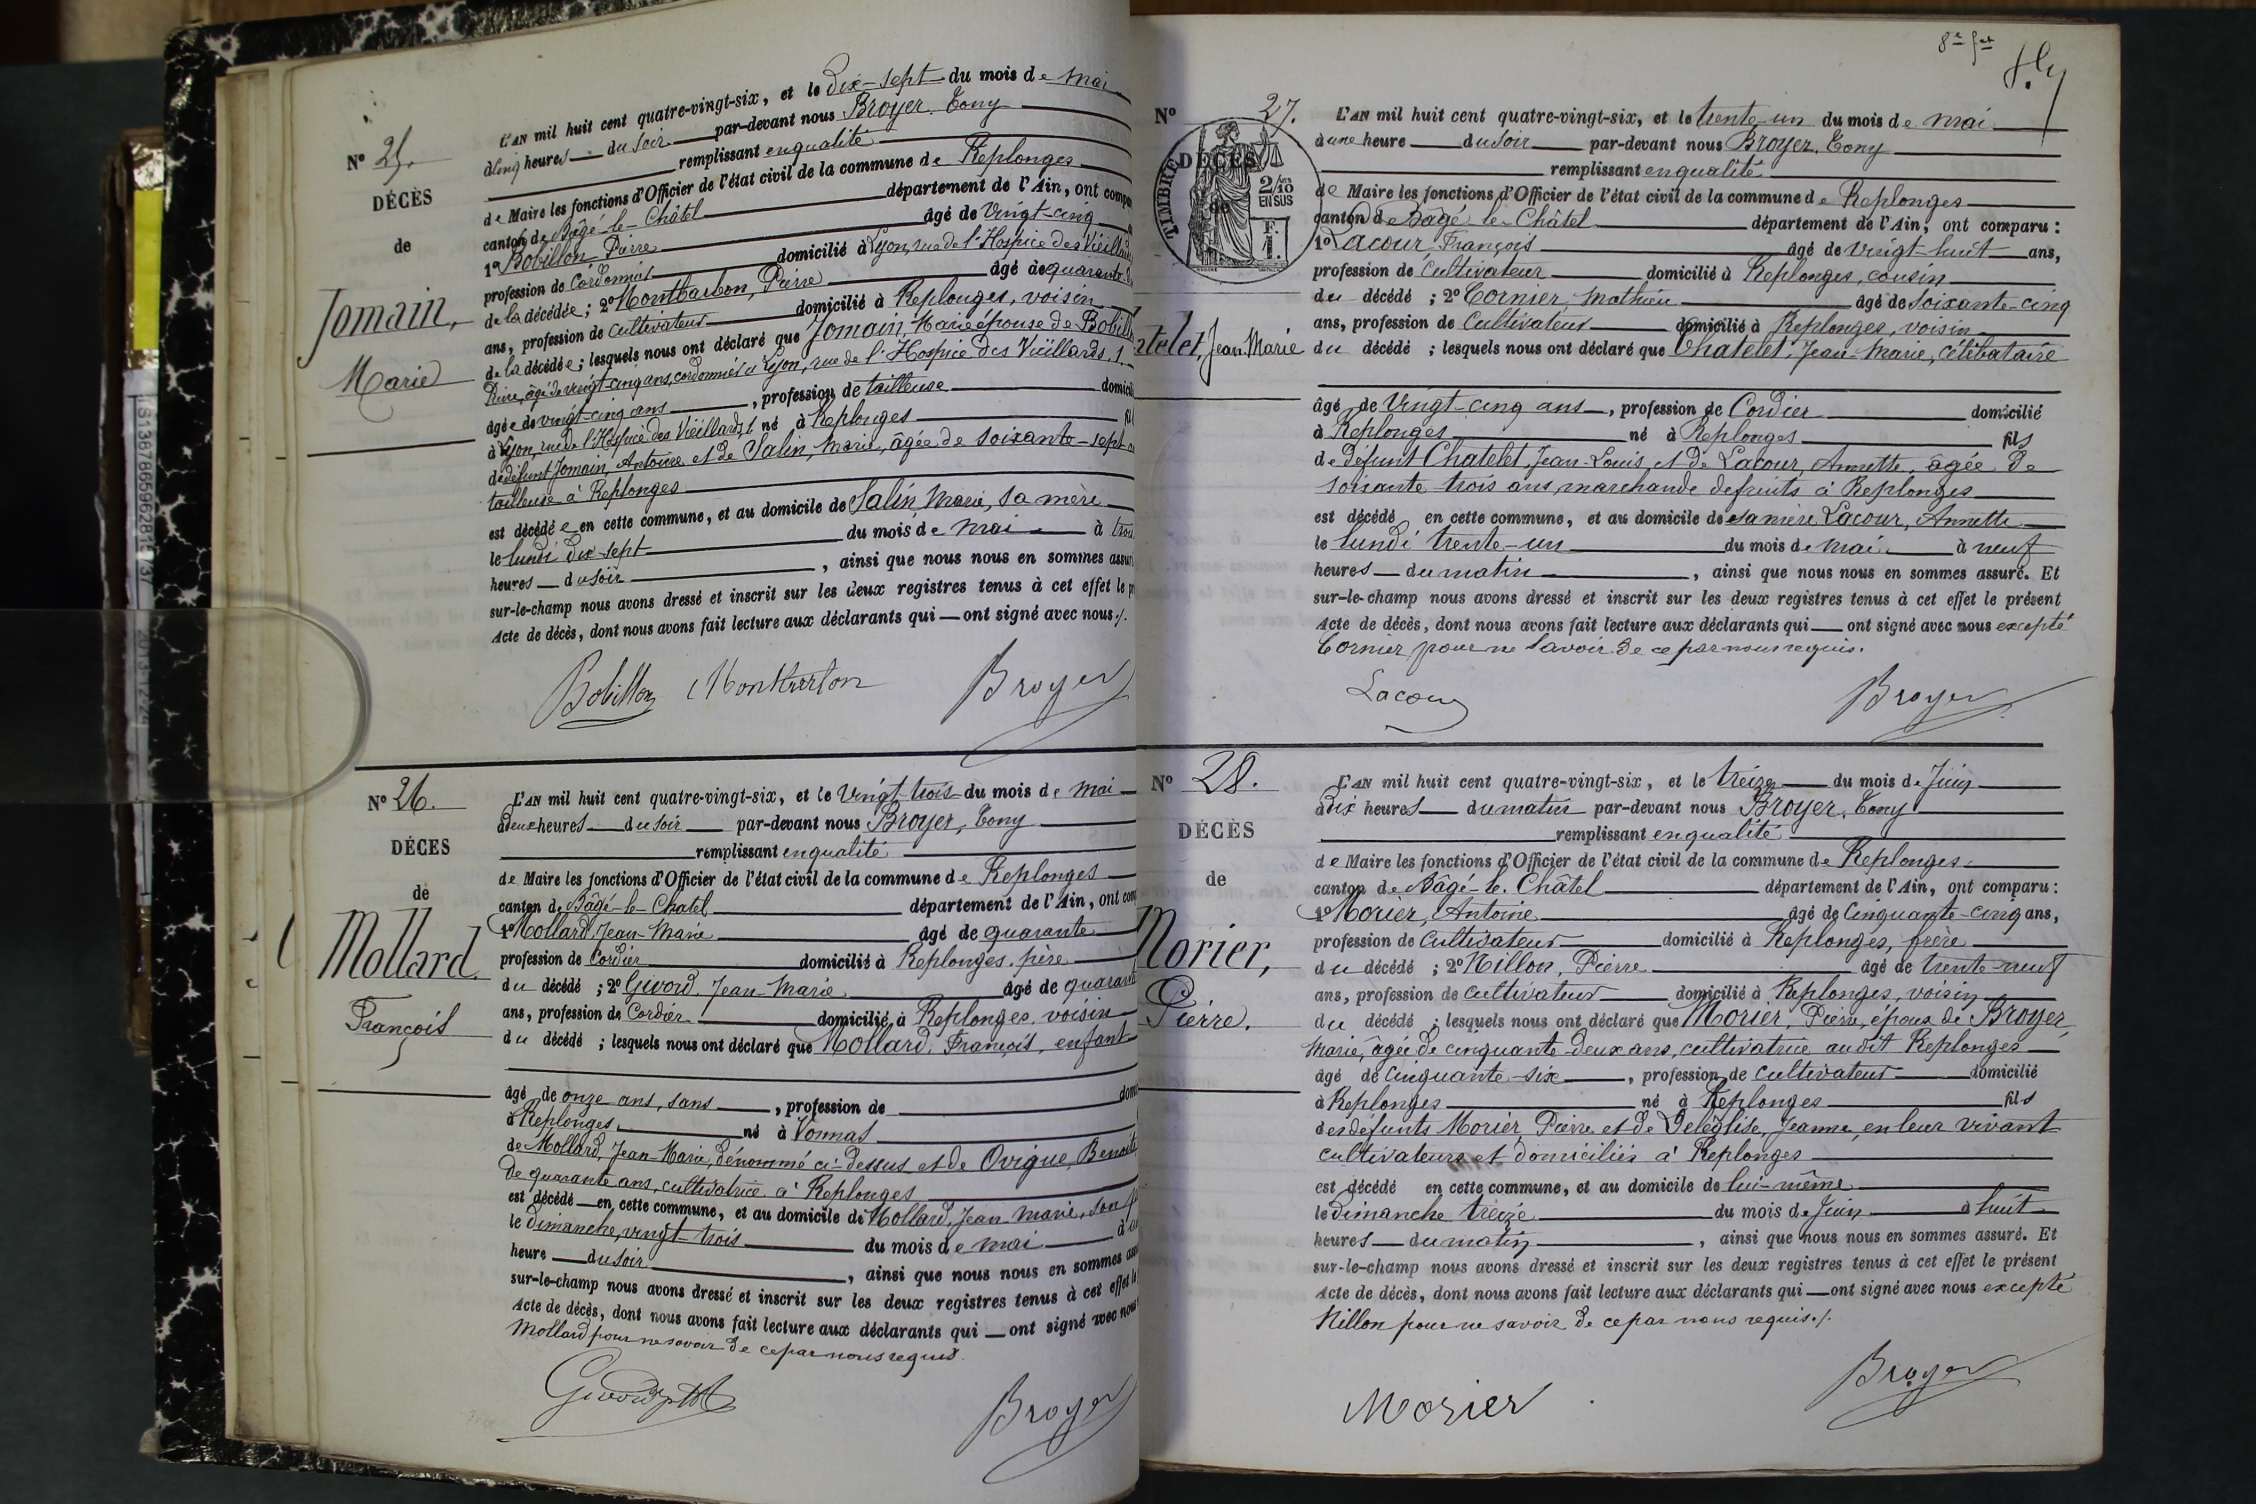 Nº 25.
DÉCÈS
de
Jomain,
Marie
L'AN mil huit cent quatre-vingt-six, et le dix-sept du mois de mai
à cinq heures du soir par-devant nous Broyer, Tony
remplissant en qualité
de Maire les fonctions d'Officier de l'état civil de la commune de Replonges
canton de Bâgé-le-Châtel département de l'Ain, ont compa
1º Bobillon Pierre âgé de vingt-cinq
profession de Cordonnier domicilié à Lyon, rue de l'Hospice des Vieillards
de la décédée ; 2º Montbarbon, Pierre âgé de quarante
ans, profession de cultivateur domicilié à Replonges, voisin
de la décédée ; lesquels nous ont déclaré que Jomain, Marie épouse de Bobill
Pierre, âgé de vingt-cinq ans, cordonnier à Lyon, rue de l'Hospice des Vieillards, 1,
âgée de vingt-cinq ans, profession de tailleuse domicil
à Lyon, rue de l'Hospice des Vieillards, 1, né à Replonges fil
de défunt Jomain, Antoine et de Salin, Marie, âgée de soixante-sept
tailleuse à Replonges
est décédée en cette commune, et au domicile de Salin Marie, sa mère
le lundi dix-sept du mois de mai à troi
heures du soir, ainsi que nous nous en sommes assur
sur-le-champ nous avons dressé et inscrit sur les deux registres tenus à cet effet le pr
Acte de décès, dont nous avons fait lecture aux déclarants qui ont signé avec nous ./.
Bobillon Montbarbon Broyer
Nº 26.
DÉCES
de
Mollard,
François
L'AN mil huit cent quatre-vingt-six, et le vingt-trois du mois de mai
à deux heures du soir par-devant nous Broyer, Tony
remplissant en qualité
de Maire les fonctions d'Officier de l'état civil de la commune de Replonges
canton de Bâgé-le-Chatel département de l'Ain, ont com
1º Mollard, Jean-Marie âgé de quarante
profession de Cordier domicilié à Replonges, père
du décédé ; 2º Givord, Jean-Marie âgé de quarant
ans, profession de Cordier domicilié à Replonges, voisin
du décédé ; lesquels nous ont déclaré que Mollard, François, enfant
âgé de onze ans, sans, profession de dom
à Replonges, né à Vonnas
de Mollard, Jean-Marie, dénommé ci-dessus et de Ovigue, Benoite
de quarante ans, cultivatrice à Replonges
est décédé en cette commune, et au domicile de Mollard, Jean-Marie, son
le dimanche, vingt-trois du mois de mai à
heure du soir, ainsi que nous nous en sommes ass
sur-le-champ nous avons dressé et inscrit sur les deux registres tenus à cet effet le
Acte de décès, dont nous avons fait lecture aux déclarants qui ont signé avec nous
Mollard pour ne savoir de ce par nous requis.
Givord Broyer
8e fet
Nº 27.
TIMBRE
DÉCÈS
de
2/10 EN SUS
F. 1.
telet, Jean Marie
L'AN mil huit cent quatre-vingt-six, et le trente-un du mois de mai
à une heure du soir par-devant nous Broyer, Tony
remplissant en qualité
de Maire les fonctions d'Officier de l'état civil de la commune de Replonges
canton de Bâgé-le-Châtel département de l'Ain, ont comparu :
1º Lacour, François âgé de vingt-huit ans,
profession de cultivateur domicilié à Replonges, cousin
du décédé ; 2º Cornier, Mathieu âgé de soixante-cinq
ans, profession de cultivateur domicilié à Replonges, voisin
du décédé ; lesquels nous ont déclaré que Chatelet, Jean-Marie, célibataire
âgé de vingt-cinq ans, profession de Cordier domicilié
à Replonges né à Replonges fils
de défunt Chatelet, Jean-Louis, et de Lacour, Annette, âgée de
soixante-trois ans, marchande de fruits à Replonges
est décédé en cette commune, et au domicile de sa mère Lacour, Annette
le lundi trente-un du mois de mai à neuf
heures du matin, ainsi que nous nous en sommes assuré. Et
sur-le-champ nous avons dressé et inscrit sur les deux registres tenus à cet effet le présent
Acte de décès, dont nous avons fait lecture aux déclarants qui ont signé avec nous excepté
Cornier pour ne savoir de ce par nous requis.
Lacour Broyer
Nº 28.
DÉCÈS
de
Morier,
Pierre.
L'AN mil huit cent quatre-vingt-six, et le treize du mois de Juin
à dix heures du matin par-devant nous Broyer, Tony
remplissant en qualité
de Maire les fonctions d'Officier de l'état civil de la commune de Replonges
canton de Bâgé-le-Châtel département de l'Ain, ont comparu :
1º Morier, Antoine âgé de cinquante-cinq ans,
profession de cultivateur domicilié à Replonges, frère
du décédé ; 2º Nillon, Pierre âgé de trente-neuf
ans, profession de cultivateur domicilié à Replonges, voisin
du décédé ; lesquels nous ont déclaré que Morier, Pierre, époux de Broyer,
Marie, âgée de cinquante-deux ans, cultivatrice audit Replonges
âgé de cinquante-six, profession de cultivateur domicilié
à Replonges né à Replonges fils
des défunts Morier, Pierre et de Deléglise, Jeanne, en leur vivant
cultivateurs et domiciliés à Replonges
est décédé en cette commune, et au domicile de lui-même
le dimanche treize du mois de Juin à huit
heures du matin, ainsi que nous nous en sommes assuré. Et
sur-le-champ nous avons dressé et inscrit sur les deux registres tenus à cet effet le présent
Acte de décès, dont nous avons fait lecture aux déclarants qui ont signé avec nous excepté
Nillon pour ne savoir de ce par nous requis ./.
Morier Broyer